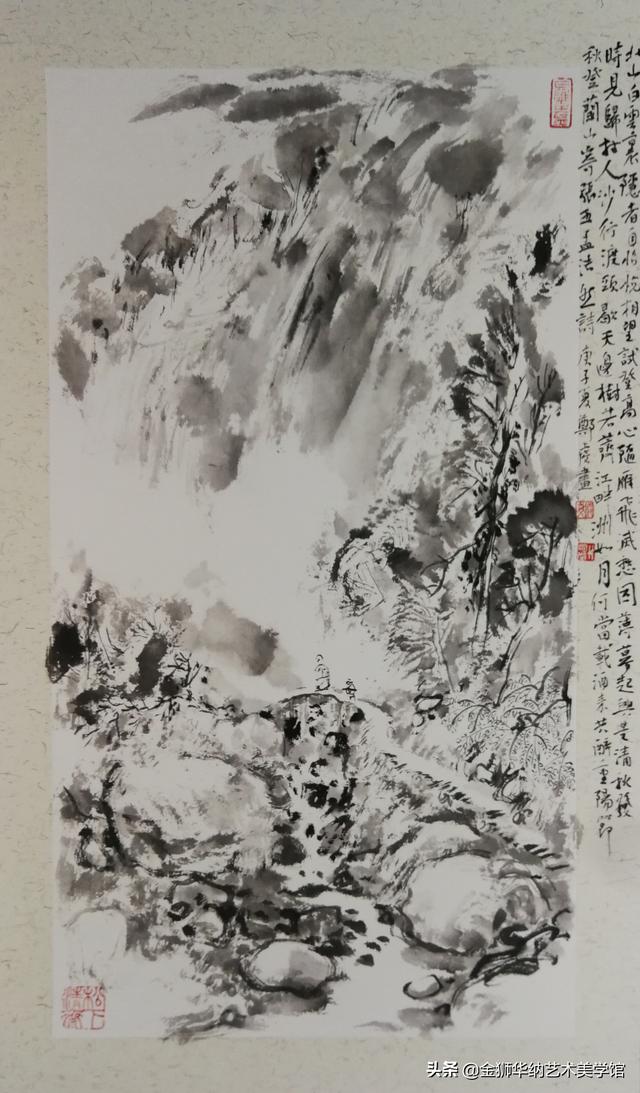 北山白雲裏隱者自怡悅相望試登高心隨雁飛滅愁因薄暮起興是清秋發
時見歸村人沙行渡頭歇天邊樹若薺江畔洲如月何當載酒來共醉重陽節
秋登蘭山寄張五孟浩然詩 庚子 鄭 畫
头条 @金狮华纳艺术美学馆